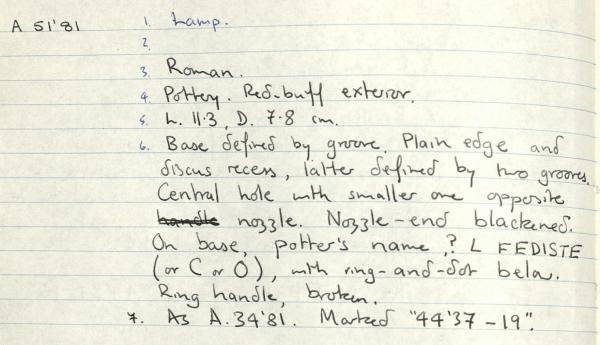 A 51'81 1. Lamp.
2.
3. Roman.
4. Pottery. Red-buff exterior.
5. L. 11.3, D. 7.8 cm.
6. Base defined by groove. Plain edge and
discus recess, latter defined by two grooves.
Central hole with smaller one opposite
handle nozzle. Nozzle-end blackened.
On base, potter's name, ? L FEDISTE
(or C or O), with ring-and-dot below.
Ring handle, broken.
7. As A.34'81. Marked "44'37-19".